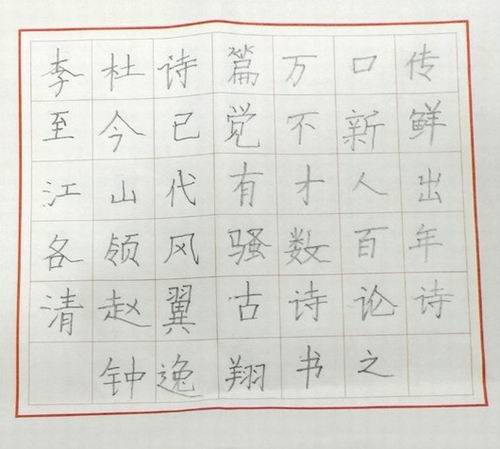 李杜诗篇万口传
至今已觉不新鲜
江山代有才人出
各领风骚数百年
清赵翼古诗论诗
钟逸翔书之